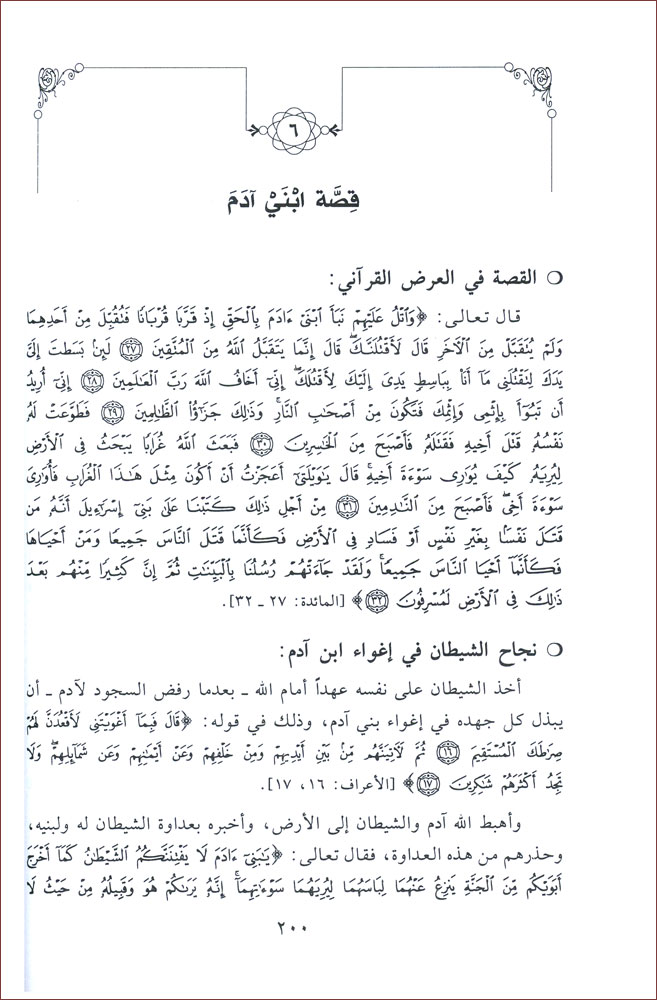 ٦
قِصَّة ابْنَيْ آدَمَ
○ القصة في العرض القرآني:
قال تعالى: ﴿وَٱتْلُ عَلَيْهِمْ نَبَأَ ٱبْنَىْ ءَادَمَ بِٱلْحَقِّ إِذْ قَرَّبَا قُرْبَانًا فَتُقُبِّلَ مِنْ أَحَدِهِمَا
وَلَمْ يُتَقَبَّلْ مِنَ ٱلْآخَرِ قَالَ لَأَقْتُلَنَّكَ ۖ قَالَ إِنَّمَا يَتَقَبَّلُ ٱللَّهُ مِنَ ٱلْمُتَّقِينَ ۝٢٧ لَئِنۢ بَسَطتَ إِلَىَّ
يَدَكَ لِتَقْتُلَنِى مَآ أَنَا۠ بِبَاسِطٍ يَدِىَ إِلَيْكَ لِأَقْتُلَكَ ۖ إِنِّىٓ أَخَافُ ٱللَّهَ رَبَّ ٱلْعَـٰلَمِينَ ۝٢٨ إِنِّىٓ أُرِيدُ
أَن تَبُوٓأَ بِإِثْمِى وَإِثْمِكَ فَتَكُونَ مِنْ أَصْحَـٰبِ ٱلنَّارِ ۚ وَذَٰلِكَ جَزَٰٓؤُا۟ ٱلظَّـٰلِمِينَ ۝٢٩ فَطَوَّعَتْ لَهُۥ
نَفْسُهُۥ قَتْلَ أَخِيهِ فَقَتَلَهُۥ فَأَصْبَحَ مِنَ ٱلْخَـٰسِرِينَ ۝٣٠ فَبَعَثَ ٱللَّهُ غُرَابًا يَبْحَثُ فِى ٱلْأَرْضِ
لِيُرِيَهُۥ كَيْفَ يُوَٰرِى سَوْءَةَ أَخِيهِ ۚ قَالَ يَـٰوَيْلَتَىٰٓ أَعَجَزْتُ أَنْ أَكُونَ مِثْلَ هَـٰذَا ٱلْغُرَابِ فَأُوَٰرِىَ
سَوْءَةَ أَخِى ۖ فَأَصْبَحَ مِنَ ٱلنَّـٰدِمِينَ ۝٣١ مِنْ أَجْلِ ذَٰلِكَ كَتَبْنَا عَلَىٰ بَنِىٓ إِسْرَٰٓءِيلَ أَنَّهُۥ مَن
قَتَلَ نَفْسًۢا بِغَيْرِ نَفْسٍ أَوْ فَسَادٍ فِى ٱلْأَرْضِ فَكَأَنَّمَا قَتَلَ ٱلنَّاسَ جَمِيعًا وَمَنْ أَحْيَاهَا
فَكَأَنَّمَآ أَحْيَا ٱلنَّاسَ جَمِيعًا ۚ وَلَقَدْ جَآءَتْهُمْ رُسُلُنَا بِٱلْبَيِّنَـٰتِ ثُمَّ إِنَّ كَثِيرًا مِّنْهُم بَعْدَ
ذَٰلِكَ فِى ٱلْأَرْضِ لَمُسْرِفُونَ ۝٣٢﴾ [المائدة: ٢٧ ـ ٣٢].
○ نجاح الشيطان في إغواء ابن آدم:
أخذ الشيطان على نفسه عهداً أمام الله ـ بعدما رفض السجود لآدم ـ أن
يبذل كل جهده في إغواء بني آدم، وذلك في قوله: ﴿قَالَ فَبِمَآ أَغْوَيْتَنِى لَأَقْعُدَنَّ لَهُمْ
صِرَٰطَكَ ٱلْمُسْتَقِيمَ ۝١٦ ثُمَّ لَـَٔاتِيَنَّهُم مِّنۢ بَيْنِ أَيْدِيهِمْ وَمِنْ خَلْفِهِمْ وَعَنْ أَيْمَـٰنِهِمْ وَعَن شَمَآئِلِهِمْ ۖ وَلَا
تَجِدُ أَكْثَرَهُمْ شَـٰكِرِينَ ۝١٧﴾ [الأعراف: ١٦، ١٧].
وأهبط الله آدم والشيطان إلى الأرض، وأخبره بعداوة الشيطان له ولبنيه،
وحذرهم من هذه العداوة، فقال تعالى: ﴿يَـٰبَنِىٓ ءَادَمَ لَا يَفْتِنَنَّكُمُ ٱلشَّيْطَـٰنُ كَمَآ أَخْرَجَ
أَبَوَيْكُم مِّنَ ٱلْجَنَّةِ يَنزِعُ عَنْهُمَا لِبَاسَهُمَا لِيُرِيَهُمَا سَوْءَٰتِهِمَآ ۗ إِنَّهُۥ يَرَىٰكُمْ هُوَ وَقَبِيلُهُۥ مِنْ حَيْثُ لَا
٢٠٠